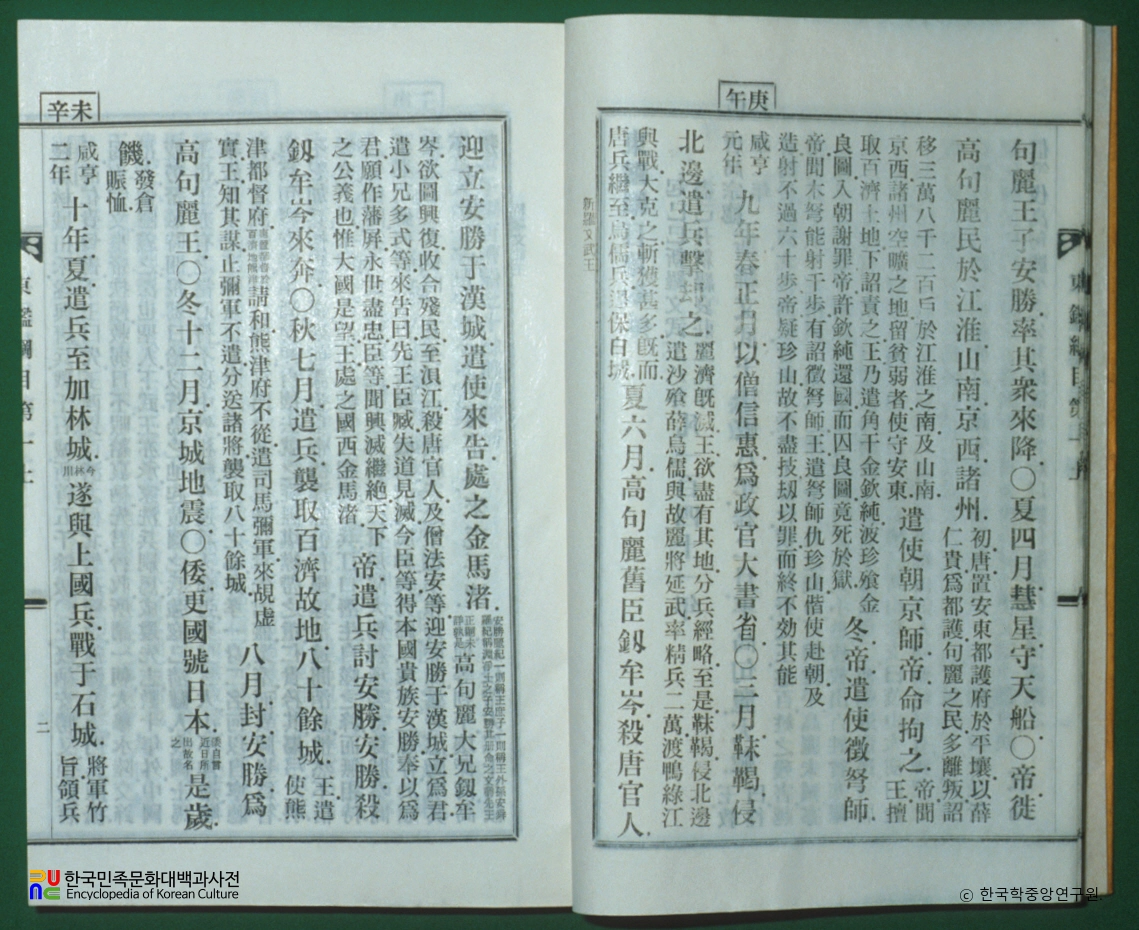 庚午
句麗王子安勝率其衆來降○夏四月彗星守天船○帝徙
高句麗民於江淮山南京西諸州
初唐置安東都護府於平壤以薛
仁貴爲都護句麗之民多離叛詔
移三萬八千二百戶於江淮之南及山南
京西諸州空曠之地留貧弱者使守安東
遣使朝京師帝命拘之
帝聞
王擅
取百濟土地下詔責之王乃遣角干金欽純波珍飡金
良圖入朝謝罪帝許欽純還國而囚良圖竟死於獄
冬帝遣使徵弩師
帝聞木弩能射千步有詔徵弩師王遣弩師仇珍山偕使赴朝及
造射不過六十步帝疑珍山故不盡技刼以罪而終不効其能
咸亨
元年
九年春正月以僧信惠爲政官大書省○三月靺鞨侵
北邊遣兵擊却之
麗濟旣滅王欲盡有其地分兵經略至是靺鞨侵北邊
遣沙飡薛烏儒與故麗將延武率精兵二萬渡鴨綠江
興戰大克之斬獲甚多旣而
唐兵繼至烏儒兵退保白城
夏六月高句麗舊臣釼牟岑殺唐官人
新羅文武王
迎立安勝于漢城遣使來告處之金馬渚
高句麗大兄釼牟
岑欲圖興復收合殘民至浿江殺唐官人及僧法安等迎安勝于漢城立爲君
遣小兄多式等來告曰先王臣臧失道見滅今臣等得本國貴族安勝奉以爲
君願作藩屛永世盡忠臣等聞興滅繼絶天下
之公義也惟大國是望王處之國西金馬渚
帝遣兵討安勝安勝殺
釼牟岑來奔○秋七月遣兵襲取百濟故地八十餘城
王遣
使熊
津都督府
請和熊津府不從遣司馬彌軍來覘虛
實王知其謀止彌軍不遣分送諸將襲取八十餘城
八月封安勝爲
高句麗王○冬十二月京城地震○倭更國號日本
是歲
饑
發倉
賑恤
辛未
咸亨
二年
十年夏遣兵至加林城
今林
川
遂與上國兵戰于石城
將軍竹
旨領兵
東鑑綱目第二上
二
한국민족문화대백과사전
Encyclopedia of Korean Culture
ⓒ 한국학중앙연구원